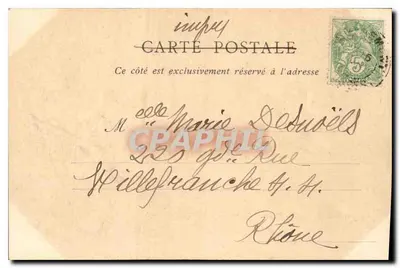 imprs
CARTE POSTALE
Ce côté est exclusivement réservé à l'adresse
Melle Marie Desnoëls
220 gde Rue
Villefranche s. s.
Rhône
5